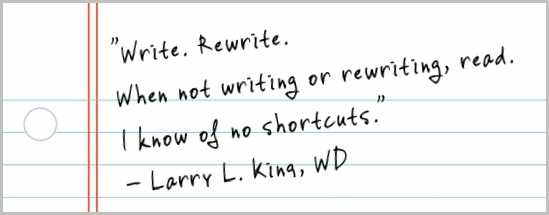 "Write. Rewrite.
When not writing or rewriting, read.
I know of no shortcuts."
– Larry L. King, WD